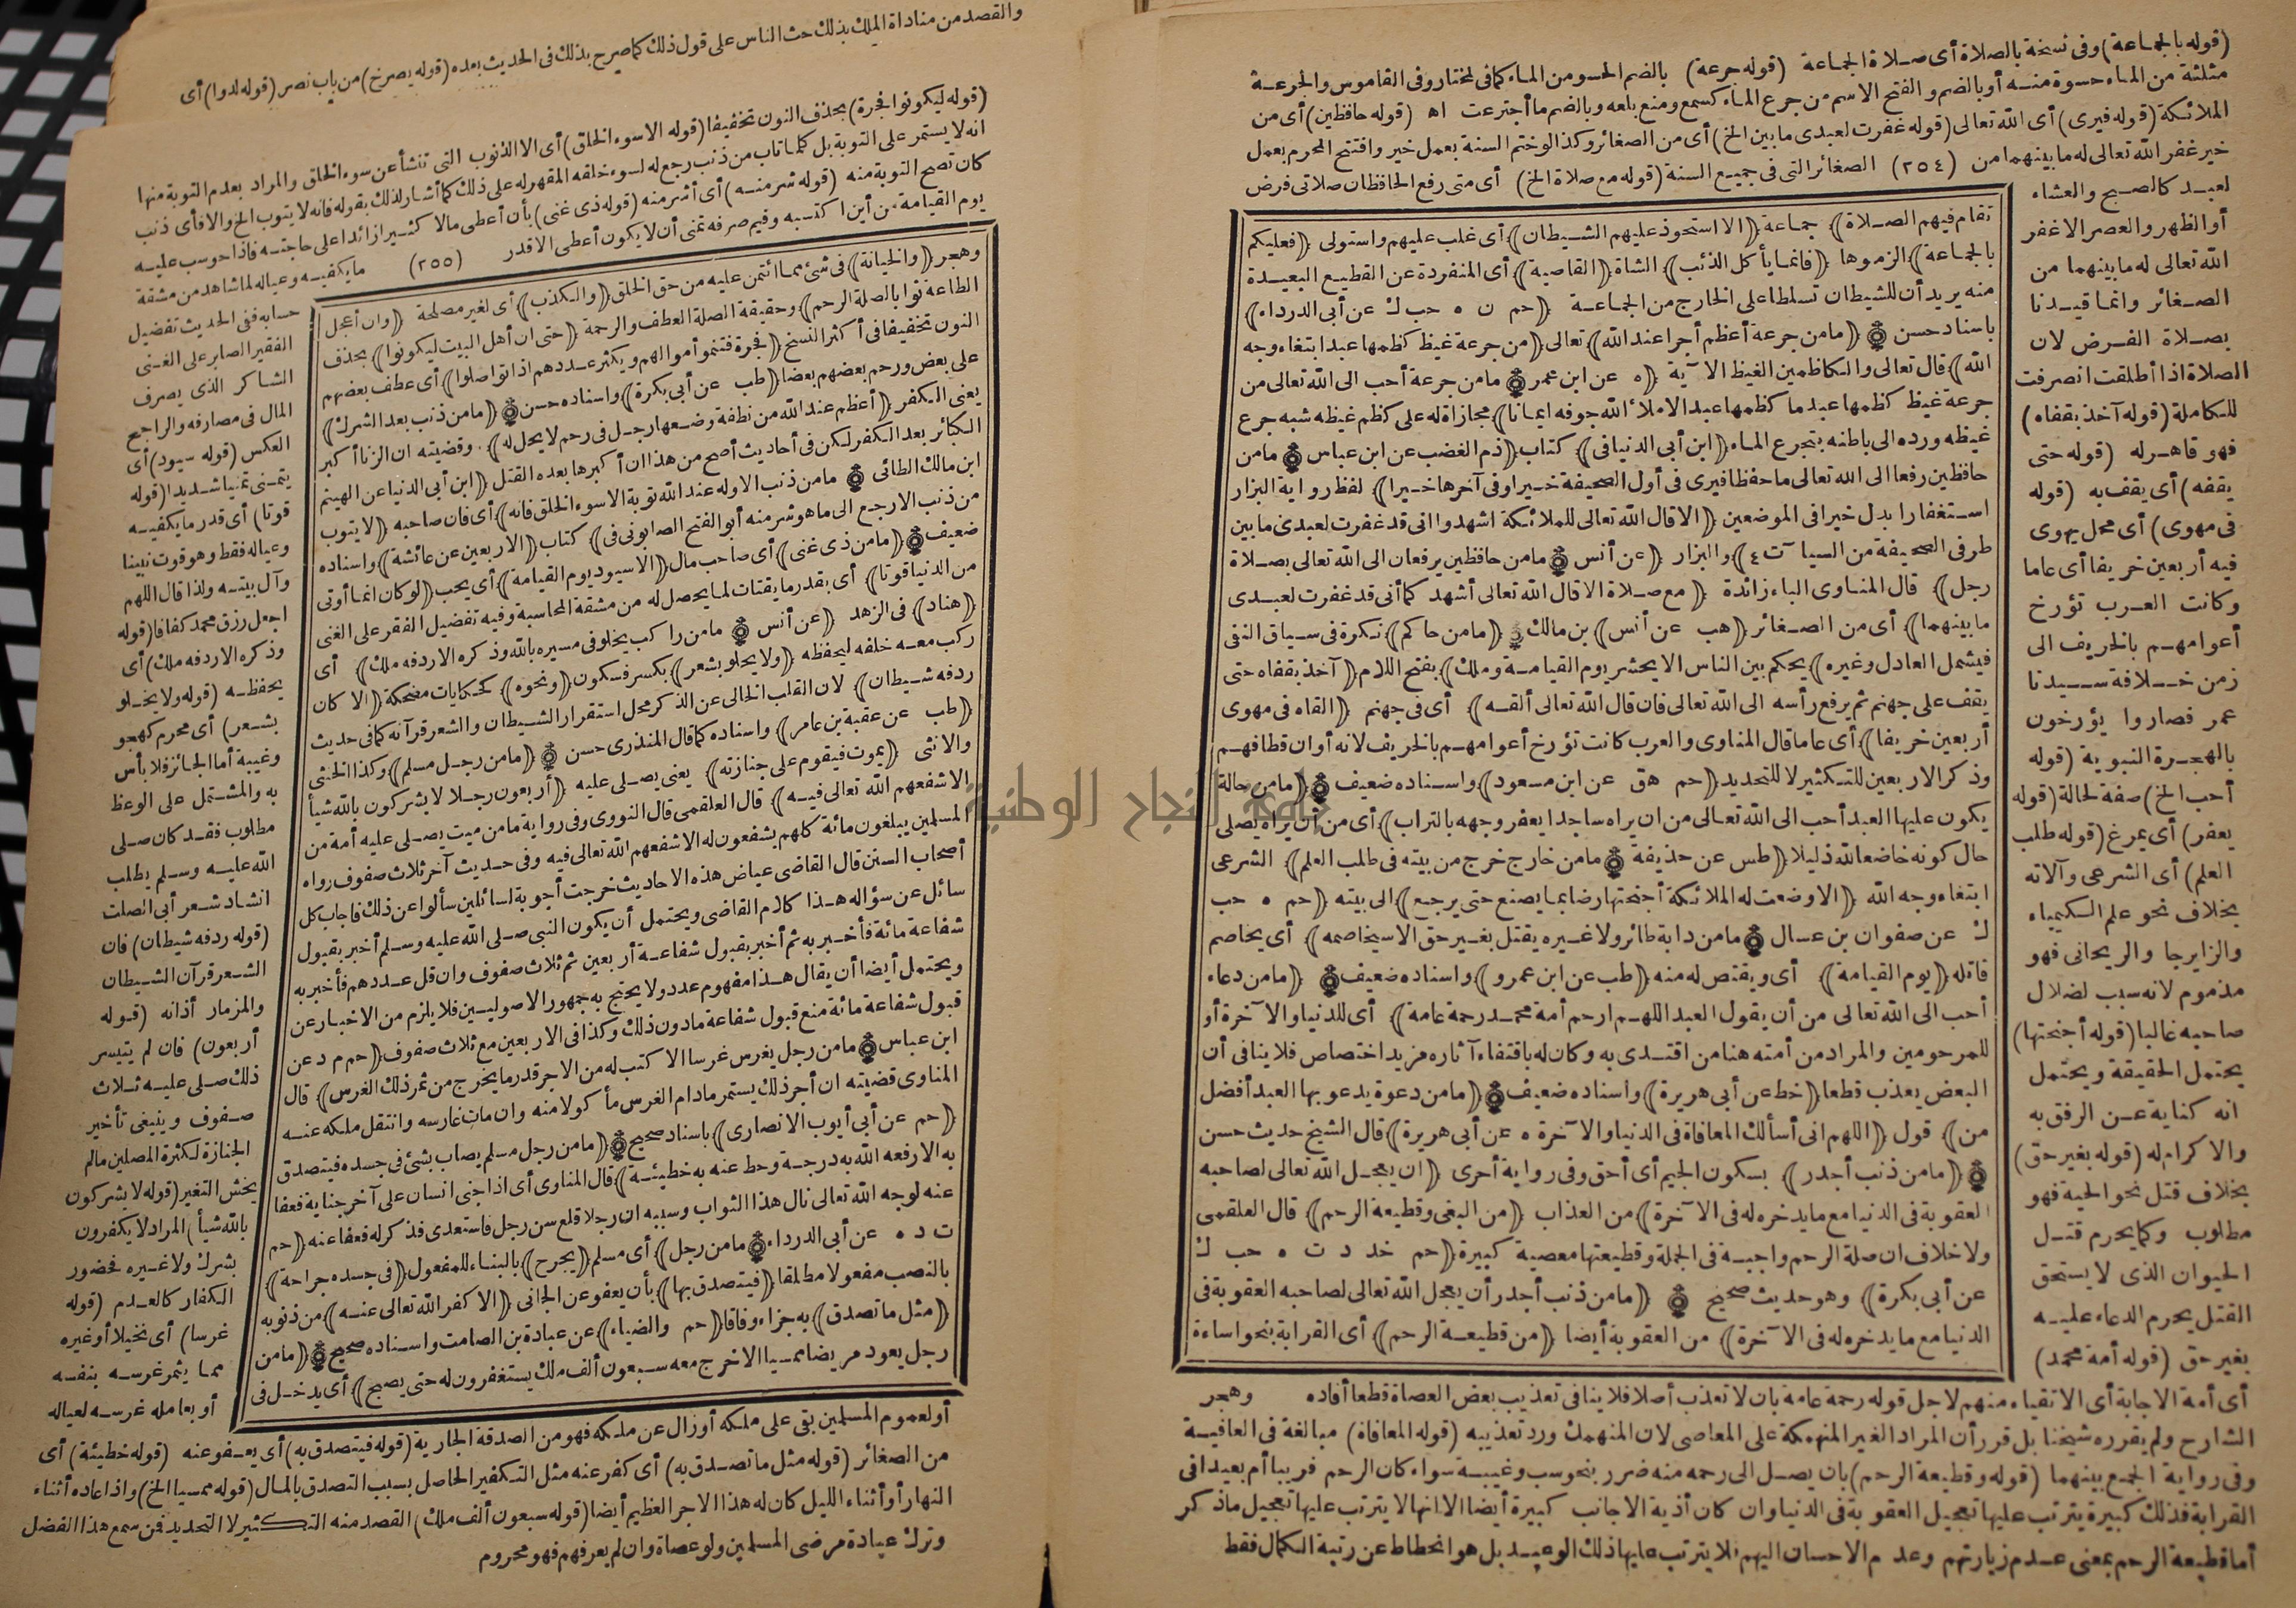 (قوله بالجماعة) وفى نسخة بالصلاة أى صلاة الجماعة (قوله جرعة) بالضم الحسو من الماء كما فى المختار وفى القاموس والجرعة
مثلثة من الماء حسوة منه أو بالضم والفتح الاسم من جرع الماء كسمع ومنع بلعه وبالضم ما أجترعت اه (قوله حافظين) أى من
الملائكة (قوله فيرى) أى الله تعالى (قوله غفرت لعبدى ما بين الخ) أى من الصغائر وكذا لو ختم السنة بعمل خير وافتتح المحرم بعمل
خير غفر الله تعالى له ما بينهما من (٢٥٤) الصغائر التى فى جميع السنة (قوله مع صلاة الخ) أى متى رفع الحافظان صلاتى فرض
لعبد كالصبح والعشاء
أو الظهر والعصر الا غفر
الله تعالى له ما بينهما من
الصغائر وانما قيدنا
بصلاة الفرض لان
الصلاة اذا أطلقت انصرفت
للكاملة (قوله آخذ بقفاه)
فهو قاهر له (قوله حتى
يقفه) أى يقف به (قوله
فى مهوى) أى محل يهوى
فيه أربعين خريفا أى عاما
وكانت العرب تؤرخ
أعوامهم بالخريف الى
زمن خلافة سيدنا
عمر فصاروا يؤرخون
بالهجرة النبوية (قوله
أحب الخ) صفة لحالة (قوله
يعفر) أى يمرغ (قوله طلب
العلم) أى الشرعى وآلاته
بخلاف نحو علم الكيمياء
والزايرجا والريحانى فهو
مذموم لانه سبب لضلال
صاحبه غالبا (قوله أجنحتها)
يحتمل الحقيقة ويحتمل
انه كناية عن الرفق به
والاكرام له (قوله بغير حق)
بخلاف قتل نحو الحية فهو
مطلوب وكما يحرم قتل
الحيوان الذى لا يستحق
القتل يحرم الدعاء عليه
بغير حق (قوله أمة محمد)
تقام فيهم الصلاة) جماعة (الا استحوذ عليهم الشيطان) أى غلب عليهم واستولى (فعليكم
بالجماعة) الزموها (فانما يأكل الذئب) الشاة (القاصية) أى المنفردة عن القطيع البعيدة
منه يريد أن للشيطان تسلطا على الخارج من الجماعة (حم ن ه حب ك عن أبى الدرداء)
باسناد حسن (ما من جرعة أعظم أجرا عند الله) تعالى (من جرعة غيظ كظمها عبد ابتغاء وجه
الله) قال تعالى والكاظمين الغيظ الآية (ه عن ابن عمر) ما من جرعة أحب الى الله تعالى من
جرعة غيظ كظمها عبد ما كظمها عبد الا ملأ الله جوفه ايمانا) مجازاة له على كظم غيظه شبه جرع
غيظه ورده الى باطنه بتجرع الماء (ابن أبى الدنيا فى) كتاب (ذم الغضب عن ابن عباس) ما من
حافظين رفعا الى الله تعالى ما حفظا فيرى فى أول الصحيفة خيرا وفى آخرها خيرا) لفظ رواية البزار
استغفارا بدل خيرا فى الموضعين (الا قال الله تعالى للملائكة اشهدوا انى قد غفرت لعبدى ما بين
طرفى الصحيفة من السيآت ع) والبزار (عن أنس) ما من حافظين يرفعان الى الله تعالى بصلاة
رجل) قال المناوى الباء زائدة (مع صلاة الا قال الله تعالى أشهد كما أنى قد غفرت لعبدى
ما بينهما) أى من الصغائر (هب عن أنس) بن مالك (ما من حاكم) نكرة فى سياق النفى
فيشمل العادل وغيره) يحكم بين الناس الا يحشر يوم القيامة وملك) بفتح اللام (آخذ بقفاه حتى
يقف على جهنم ثم يرفع رأسه الى الله تعالى فان قال الله تعالى ألقه) أى فى جهنم (القاه فى مهوى
أربعين خريفا) أى عاما قال المناوى والعرب كانت تؤرخ أعوامهم بالخريف لانه أوان قطافهم
وذكر الاربعين للتكثير لا للتحديد (حم هق عن ابن مسعود) واسناده ضعيف (ما من حالة
يكون عليها العبد أحب الى الله تعالى من ان يراه ساجدا يعفر وجهه بالتراب) أى من أن يراه يصلى
حال كونه خاضعا لله ذليلا (طس عن حذيفة) ما من خارج خرج من بيته فى طلب العلم) الشرعى
ابتغاء وجه الله (الا وضعت له الملائكة أجنحتها رضا بما يصنع حتى يرجع) الى بيته (حم ه حب
ك عن صفوان بن عسال) ما من دابة طائر ولا غيره يقتل بغير حق الا سيخاصمه) أى يخاصم
قاتله (يوم القيامة) أى ويقتص له منه (طب عن ابن عمرو) واسناده ضعيف (ما من دعاء
أحب الى الله تعالى من أن يقول العبد اللهم ارحم أمة محمد رحمة عامة) أى للدنيا والآخرة أو
للمرحومين والمراد من أمته هنا من اقتدى به وكان له باقتفاء آثاره مزيد اختصاص فلا ينافى أن
البعض يعذب قطعا (خط عن أبى هريرة) واسناده ضعيف (ما من دعوة يدعو بها العبد أفضل
من) قول (اللهم انى أسألك المعافاة فى الدنيا والآخرة ه عن أبى هريرة) قال الشيخ حديث حسن
(ما من ذنب أجدر) بسكون الجيم أى أحق وفى رواية أحرى (ان يعجل الله تعالى لصاحبه
العقوبة فى الدنيا مع ما يدخره له فى الآخرة) من العذاب (من البغى وقطيعة الرحم) قال العلقمى
ولا خلاف ان صلة الرحم واجبة فى الجملة وقطيعتها معصية كبيرة (حم خد د ت ه حب ك
عن أبى بكرة) وهو حديث صحيح (ما من ذنب أجدر أن يعجل الله تعالى لصاحبه العقوبة فى
الدنيا مع ما يدخره له فى الآخرة) من العقوبة أيضا (من قطيعة الرحم) أى القرابة بنحو اساءة
أى أمة الاجابة أى الاتقياء منهم لاجل قوله رحمة عامة بان لا تعذب أصلا فلا ينافى تعذيب بعض العصاة قطعا أفاده وهجر
الشارح ولم يقرره شيخنا بل قرر أن المراد الغير المنهمكة على المعاصى لان المنهمك ورد تعذيبه (قوله المعافاة) مبالغة فى العافية
وفى رواية الجمع بينهما (قوله وقطيعة الرحم) بان يصل الى رحمه منه ضرر بنحو سب وغيبة سواء كان الرحم قريبا أم بعيدا فى
القرابة فذلك كبيرة يترتب عليها تعجيل العقوبة فى الدنيا وان كان أذية الاجانب كبيرة أيضا الا انها لا يترتب عليها تعجيل ما ذكر
أما قطيعة الرحم بمعنى عدم زيارتهم وعدم الاحسان اليهم فلا يترتب عليها ذلك الوعيد بل هو انحطاط عن رتبة الكمال فقط
والقصد من مناداة الملك بذلك حث الناس على قول ذلك كما صرح بذلك فى الحديث بعده (قوله يصرخ) من باب نصر (قوله لدوا) أى
(قوله ليكونوا فجرة) بحذف النون تخفيفا (قوله الا سوء الخلق) أى الا الذنوب التى تنشأ عن سوء الخلق والمراد بعدم التوبة منها
انه لا يستمر على التوبة بل كلما تاب من ذنب رجع له لسوء خلقه المقهر له على ذلك كما أشار لذلك بقوله فانه لا يتوب الخ والا فأى ذنب
كان تصح التوبة منه (قوله شر منه) أى أشر منه (قوله ذى غنى) بأن أعطى مالا كثيرا زائدا على حاجته فاذا حوسب عليه
يوم القيامة من أين اكتسبه وفيم صرفه تمنى أن لا يكون أعطى الا قدر (٢٥٥) ما يكفيه وعياله لما شاهد من مشقة
حسابه ففى الحديث تفضيل
الفقير الصابر على الغنى
الشاكر الذى يصرف
المال فى مصارفه والراجح
العكس (قوله سيود) أى
يتمنى تمنيا شديدا (قوله
قوتا) أى قدر ما يكفيه
وعياله فقط وهو قوت نبينا
وآل بيته ولذا قال اللهم
اجعل رزق محمد كفافا (قوله
وذكره الا ردفه ملك) أى
يحفظه (قوله ولا يخلو
بشعر) أى محرم كهجو
وغيبة أما الجائز فلا بأس
به والمشتمل على الوعظ
مطلوب فقد كان صلى
الله عليه وسلم يطلب
انشاد شعر أبى الصلت
(قوله ردفه شيطان) فان
الشعر قرآن الشيطان
والمزمار أذانه (قوله
أربعون) فان لم يتيسر
ذلك صلى عليه ثلاث
صفوف وينبغى تأخير
الجنازة لكثرة المصلين ما لم
يخش التغير (قوله لا يشركون
بالله شيأ) المراد لا يكفرون
بشرك ولا غيره فحضور
الكفار كالعدم (قوله
غرسا) أى نخيلا أو غيره
مما يثمر غرسه بنفسه
أو بعامله غرسه لعياله
وهجر (والخيانة) فى شئ مما ائتمن عليه من حق الخلق (والكذب) أى لغير مصلحة (وان أعجل
الطاعة ثوابا لصلة الرحم) وحقيقة الصلة العطف والرحمة (حتى ان أهل البيت ليكونوا) بحذف
النون تخفيفا فى أكثر النسخ (فجرة فتنمو أموالهم ويكثر عددهم اذا تواصلوا) أى عطف بعضهم
على بعض ورحم بعضهم بعضا (طب عن أبى بكرة) واسناده حسن (ما من ذنب بعد الشرك)
يعنى الكفر (أعظم عند الله من نطفة وضعها رجل فى رحم لا يحل له). وقضيته ان الزنا أكبر
الكبائر بعد الكفر لكن فى أحاديث أصح من هذا ان أكبرها بعده القتل (ابن أبى الدنيا عن الهيثم
ابن مالك الطائى) ما من ذنب الا وله عند الله توبة الا سوء الخلق فانه) أى فان صاحبه (لا يتوب
من ذنب الا رجع الى ما هو شر منه أبو الفتح الصابونى فى) كتاب (الاربعين عن عائشة) واسناده
ضعيف (ما من ذى غنى) أى صاحب مال (الا سيود يوم القيامة) أى يحب (لو كان انما أوتى
من الدنيا قوتا) أى بقدر ما يقتات لما يحصل له من مشقة المحاسبة وفيه تفضيل الفقر على الغنى
(هناد) فى الزهد (عن أنس) ما من راكب يخلو فى مسيره بالله وذكره الا ردفه ملك) أى
ركب معه خلفه ليحفظه (ولا يخلو بشعر) بكسر فسكون (ونحوه) كحكايات مضحكة (الا كان
ردفه شيطان) لان القلب الخالى عن الذكر محل استقرار الشيطان والشعر قرآنه كما فى حديث
(طب عن عقبة بن عامر) واسناده كما قال المنذرى حسن (ما من رجل مسلم) وكذا الخنثى
والانثى (يموت فيقوم على جنازته) يعنى يصلى عليه (أربعون رجلا لا يشركون بالله شيأ
الا شفعهم الله تعالى فيه) قال العلقمى قال النووى وفى رواية ما من ميت يصلى عليه أمة من
المسلمين يبلغون مائة كلهم يشفعون له الا شفعهم الله تعالى فيه وفى حديث آخر ثلاث صفوف رواه
أصحاب السنن قال القاضى عياض هذه الاحاديث خرجت أجوبة لسائلين سألوا عن ذلك فاجاب كل
سائل عن سؤاله هذا كلام القاضى ويحتمل أن يكون النبى صلى الله عليه وسلم أخبر بقبول
شفاعة مائة فأخبر به ثم أخبر بقبول شفاعة أربعين ثم ثلاث صفوف وان قل عددهم فأخبر به
ويحتمل أيضا أن يقال هذا مفهوم عدد ولا يحتج به جمهور الاصوليين فلا يلزم من الاخبار عن
قبول شفاعة مائة منع قبول شفاعة مادون ذلك وكذا فى الاربعين مع ثلاث صفوف (حم م د عن
ابن عباس) ما من رجل يغرس غرسا الا كتب له من الاجر قدر ما يخرج من ثمر ذلك الغرس) قال
المناوى قضيته ان أجر ذلك يستمر مادام الغرس مأكولا منه وان مات غارسه وانتقل ملكه عنه
(حم عن أبى أيوب الانصارى) باسناد صحيح (ما من رجل مسلم يصاب بشئ فى جسده فيتصدق
به الا رفعه الله به درجة وحط عنه به خطيئة) قال المناوى أى اذا جنى انسان على آخر جناية فعفا
عنه لوجه الله تعالى نال هذا الثواب وسببه ان رجلا قلع سن رجل فاستعدى فذكر له فعفا عنه (حم
ت د ه عن أبى الدرداء) ما من رجل) أى مسلم (يجرح) بالبناء للمفعول (فى جسده جراحة)
بالنصب مفعولا مطلقا (فيتصدق بها) بأن يعفو عن الجانى (الا كفر الله تعالى عنه) من ذنوبه
(مثل ما تصدق) به جزاء وفاقا (حم والضياء) عن عبادة بن الصامت واسناده صحيح (ما من
رجل يعود مريضا ممسيا الا خرج معه سبعون ألف ملك يستغفرون له حتى يصبح) أى يدخل فى
أو لعموم المسلمين بقى على ملكه أو زال عن ملكه فهو من الصدقة الجارية (قوله فيتصدق به) أى يعفو عنه (قوله خطيئة) أى
من الصغائر (قوله مثل ما تصدق به) أى كفر عنه مثل التكفير الحاصل بسبب التصدق بالمال (قوله ممسيا الخ) واذا عاده أثناء
النهار أو أثناء الليل كان له هذا الاجر العظيم أيضا (قوله سبعون ألف ملك) القصد منه التكثير لا التحديد فمن سمع هذا الفضل
وترك عيادة مرضى المسلمين ولو عصاة وان لم يعرفهم فهو محروم
جامعة النجاح الوطنية